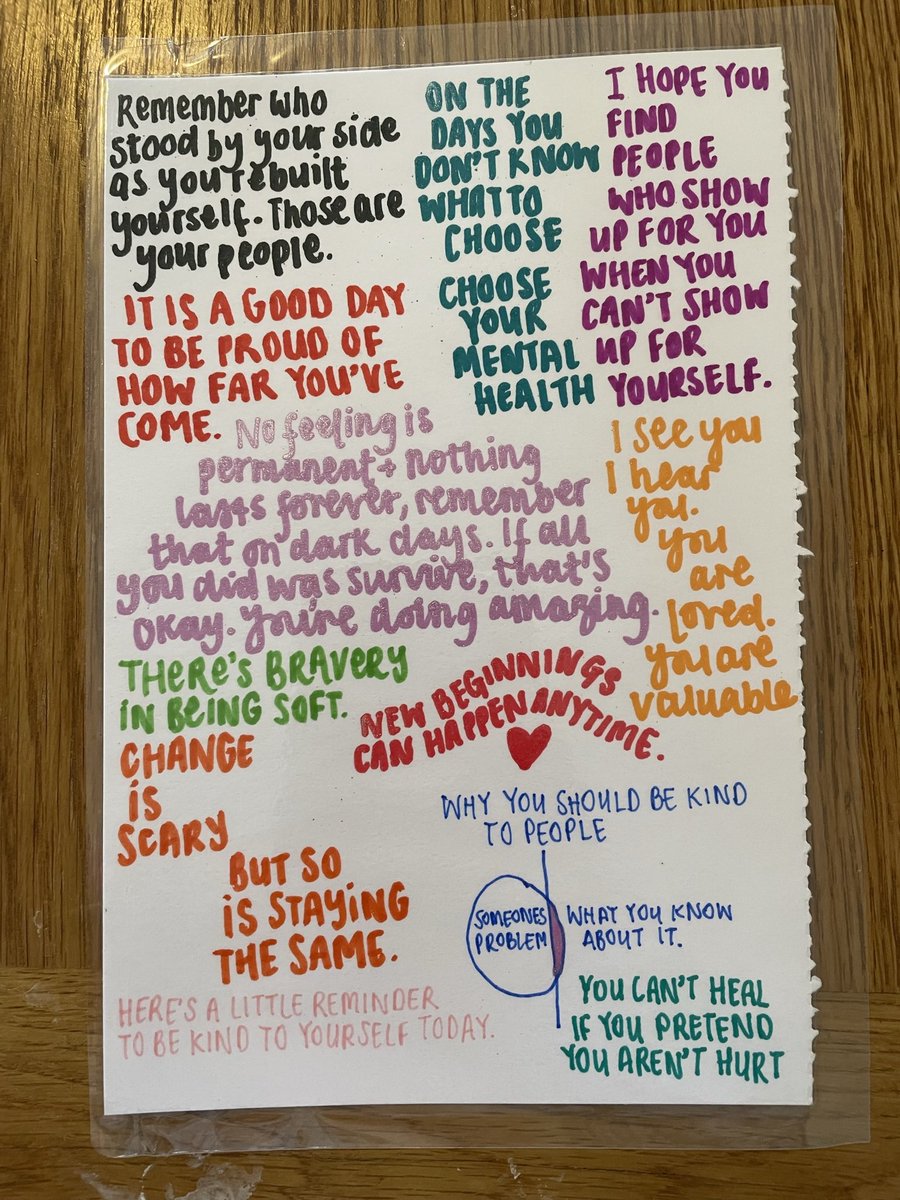 Remember who
stood by your side
as you rebuilt
yourself. Those are
your people.
ON THE
DAYS YOU
DON'T KNOW
WHAT TO
CHOOSE
CHOOSE
YOUR
MENTAL
HEALTH
I HOPE YOU
FIND
PEOPLE
WHO SHOW
UP FOR YOU
WHEN YOU
CAN'T SHOW
UP FOR
YOURSELF.
IT IS A GOOD DAY
TO BE PROUD OF
HOW FAR YOU'VE
COME.
No feeling is
permanent + nothing
lasts forever, remember
that on dark days. If all
you did was survive, that's
okay. You're doing amazing.
I see you
I hear
you.
you
are
loved.
you are
valuable
THERE'S BRAVERY
IN BEING SOFT.
NEW BEGINNINGS
CAN HAPPEN ANYTIME.
CHANGE
iS
SCARY
BUT SO
iS STAYING
THE SAME.
WHY YOU SHOULD BE KIND
TO PEOPLE
SOMEONES
PROBLEM
WHAT YOU KNOW
ABOUT IT.
HERE'S A LITTLE REMINDER
TO BE KIND TO YOURSELF TODAY.
YOU CAN'T HEAL
IF YOU PRETEND
YOU AREN'T HURT